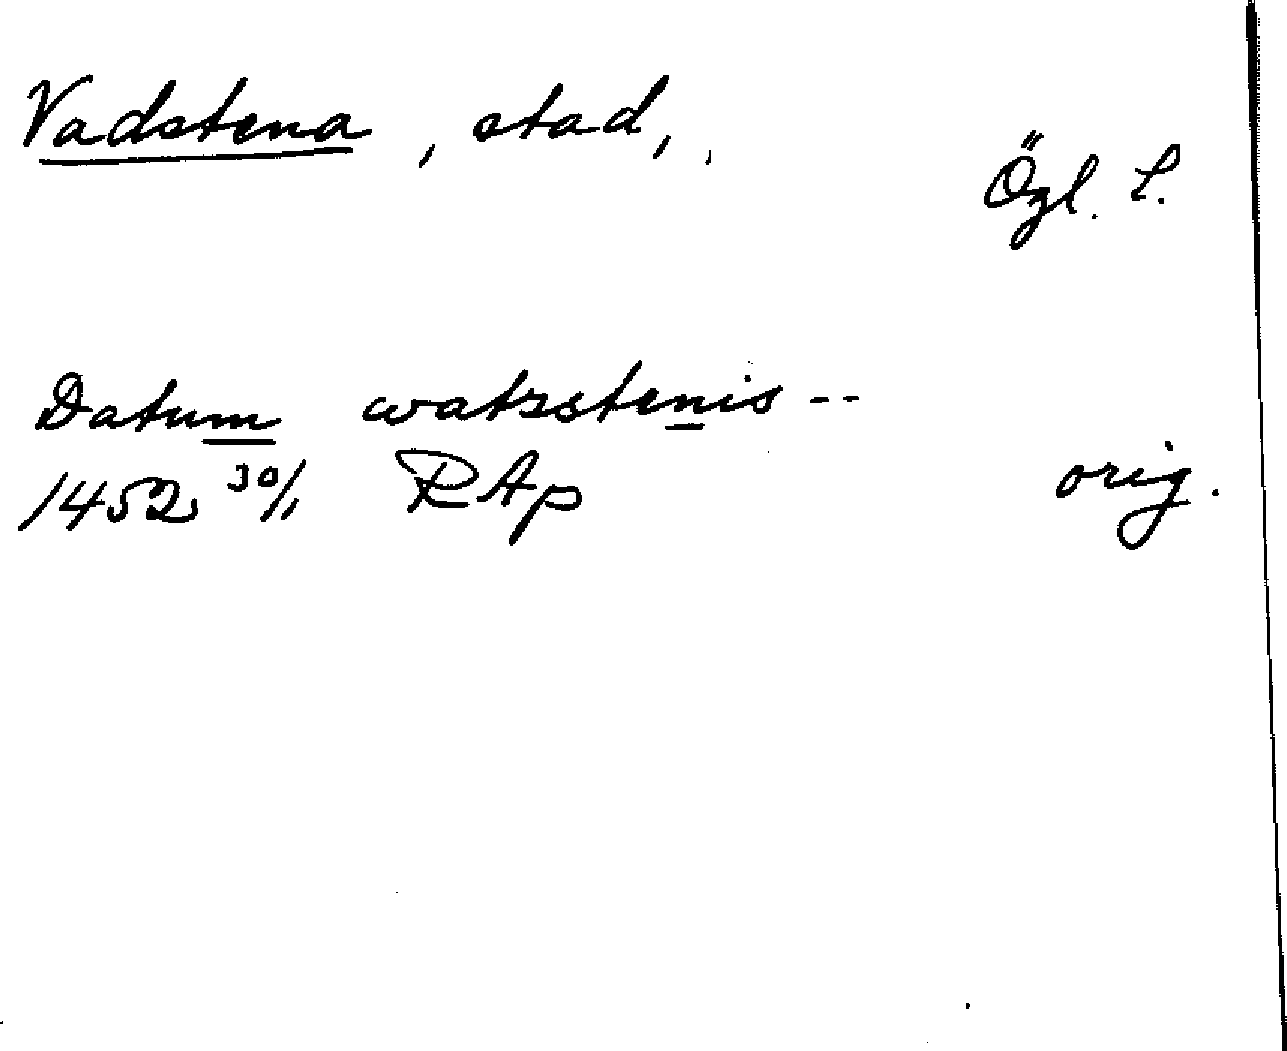 Vadstena, stad,
Ögl. l.
Datum watzstenis --
1452 30/1 RAp orig.